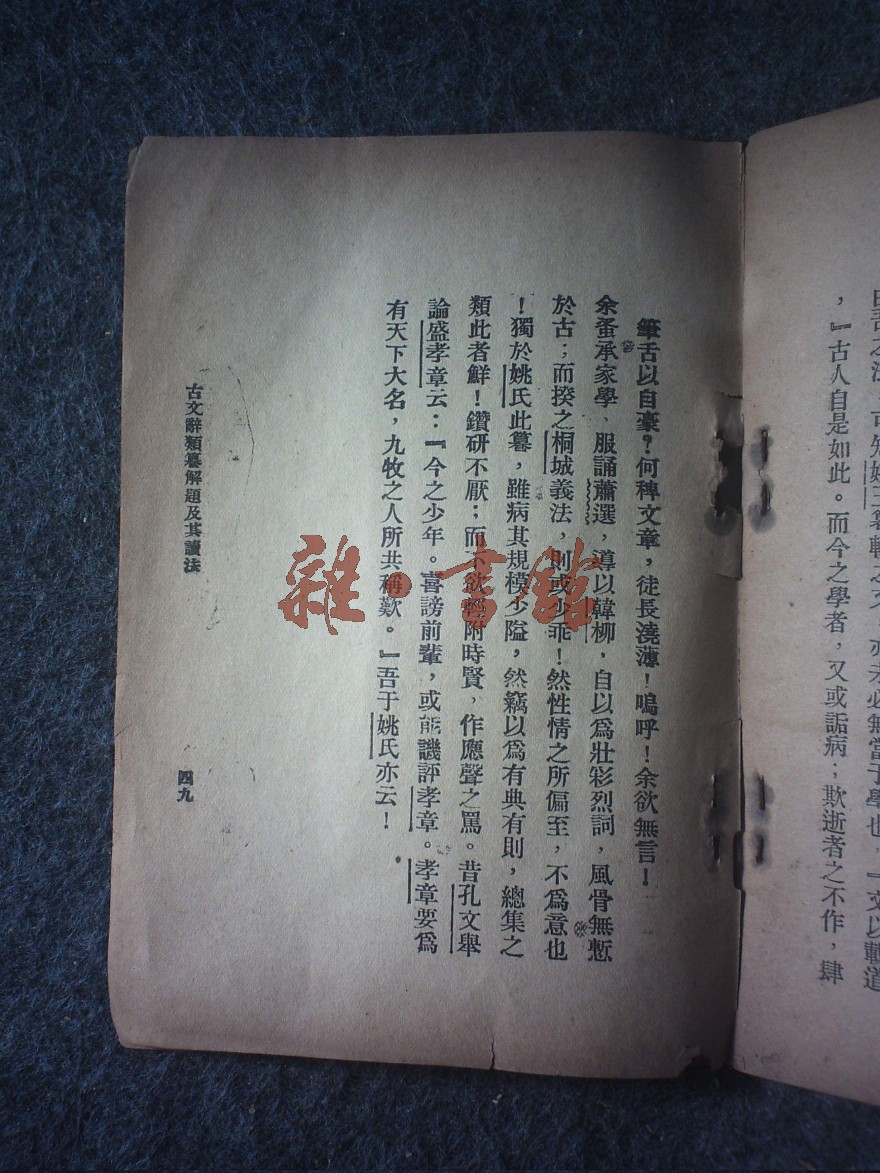 ，『古人自是如此。而今之學者，又或詬病；欺逝者之不作，肆
筆舌以自豪？何稗文章，徒長澆薄！嗚呼！余欲無言！
余蚤承家學、服誦蕭選，導以韓柳，自以爲壯彩烈詞，風骨無慙
於古；而揆之桐城義法，則或少乖！然性情之所偏至，不爲意也
！獨於姚氏此纂，雖病其規模少隘，然竊以爲有典有則，總集之
類此者鮮！鑽研不厭；而不欲輕附時賢，作應聲之罵。昔孔文舉
論盛孝章云：『今之少年。喜謗前輩，或能譏評孝章。孝章要爲
有天下大名，九牧之人所共稱歎。』吾于姚氏亦云！
古文辭類纂解題及其讀法
四九
雜·書館